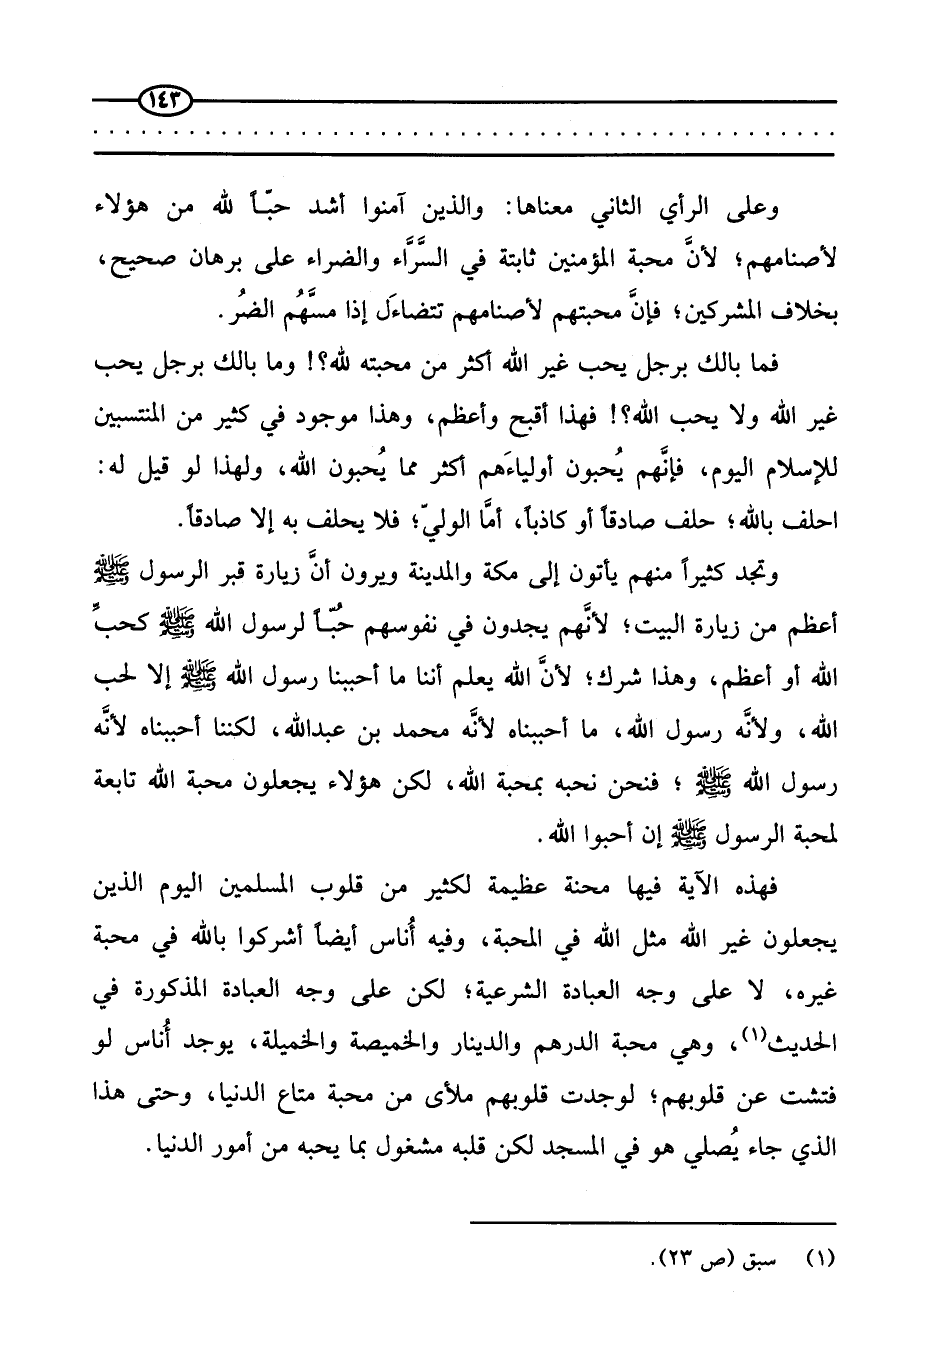 ١٤٣
وعلى الرأي الثاني معناها: والذين آمنوا أشد حبّـاً لله من هؤلاء
لأصنامهم؛ لأنَّ محبة المؤمنين ثابتة في السرَّاء والضراء على برهان صحيح،
بخلاف المشركين؛ فإنَّ محبتهم لأصنامهم تتضاءَل إذا مسَّهُم الضرُ.
فما بالك برجل يحب غير الله أكثر من محبته لله؟! وما بالك برجل يحب
غير الله ولا يحب الله؟! فهذا أقبح وأعظم، وهذا موجود في كثير من المنتسبين
للإسلام اليوم، فإنَّهم يُحبون أولياءَهم أكثر مما يُحبون الله، ولهذا لو قيل له:
احلف بالله؛ حلف صادقاً أو كاذباً، أمَّا الوليّ؛ فلا يحلف به إلا صادقاً.
وتجد كثيراً منهم يأتون إلى مكة والمدينة ويرون أنَّ زيارة قبر الرسول ﷺ
أعظم من زيارة البيت؛ لأنَّهم يجدون في نفوسهم حُبّـاً لرسول الله ﷺ كحبِّ
الله أو أعظم، وهذا شرك؛ لأنَّ الله يعلم أننا ما أحببنا رسول الله ﷺ إلا لحب
الله، ولأنَّه رسول الله، ما أحببناه لأنَّه محمد بن عبدالله، لكننا أحببناه لأنَّه
رسول الله ﷺ ؛ فنحن نحبه بمحبة الله، لكن هؤلاء يجعلون محبة الله تابعة
لمحبة الرسول ﷺ إن أحبوا الله.
فهذه الآية فيها محنة عظيمة لكثير من قلوب المسلمين اليوم الذين
يجعلون غير الله مثل الله في المحبة، وفيه أُناس أيضاً أشركوا بالله في محبة
غيره، لا على وجه العبادة الشرعية؛ لكن على وجه العبادة المذكورة في
الحديث(١)، وهي محبة الدرهم والدينار والخميصة والخميلة، يوجد أُناس لو
فتشت عن قلوبهم؛ لوجدت قلوبهم ملأى من محبة متاع الدنيا، وحتى هذا
الذي جاء يُصلي هو في المسجد لكن قلبه مشغول بما يحبه من أمور الدنيا.
(١) سبق (ص ٢٣).